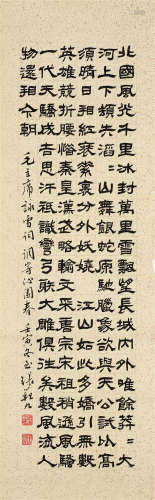 北國風光千里冰封萬里雪飄望長城內外唯餘莽〻大
河上下頓失滔〻山舞銀蛇原馳臘象欲與天公試比高
須晴日看紅裝素裹分外妖嬈江山如此多嬌引無數
英雄競折腰惜秦皇漢武略輸文采唐宗宋祖稍遜風騷
一代天驕成吉思汗祇識彎弓射大雕俱往矣數風流人
物還看今朝
毛主席詠雪詞 調寄沁園春 壬寅冬